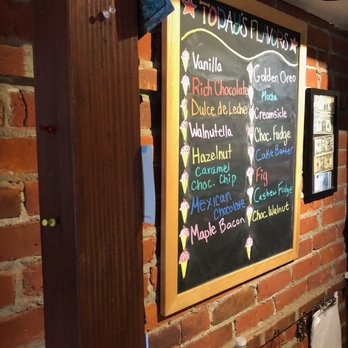 TODAY'S FLAVORS
Vanilla
Rich Chocolate
Dulce de Leche
Walnutella
Hazelnut
Caramel
Choc. Chip
Mexican
Chocolate
Maple Bacon
Golden Oreo
Mocha
Creamsicle
Choc. Fudge
Cake Batter
Fig
Cashew Fudge
Choc. Walnut